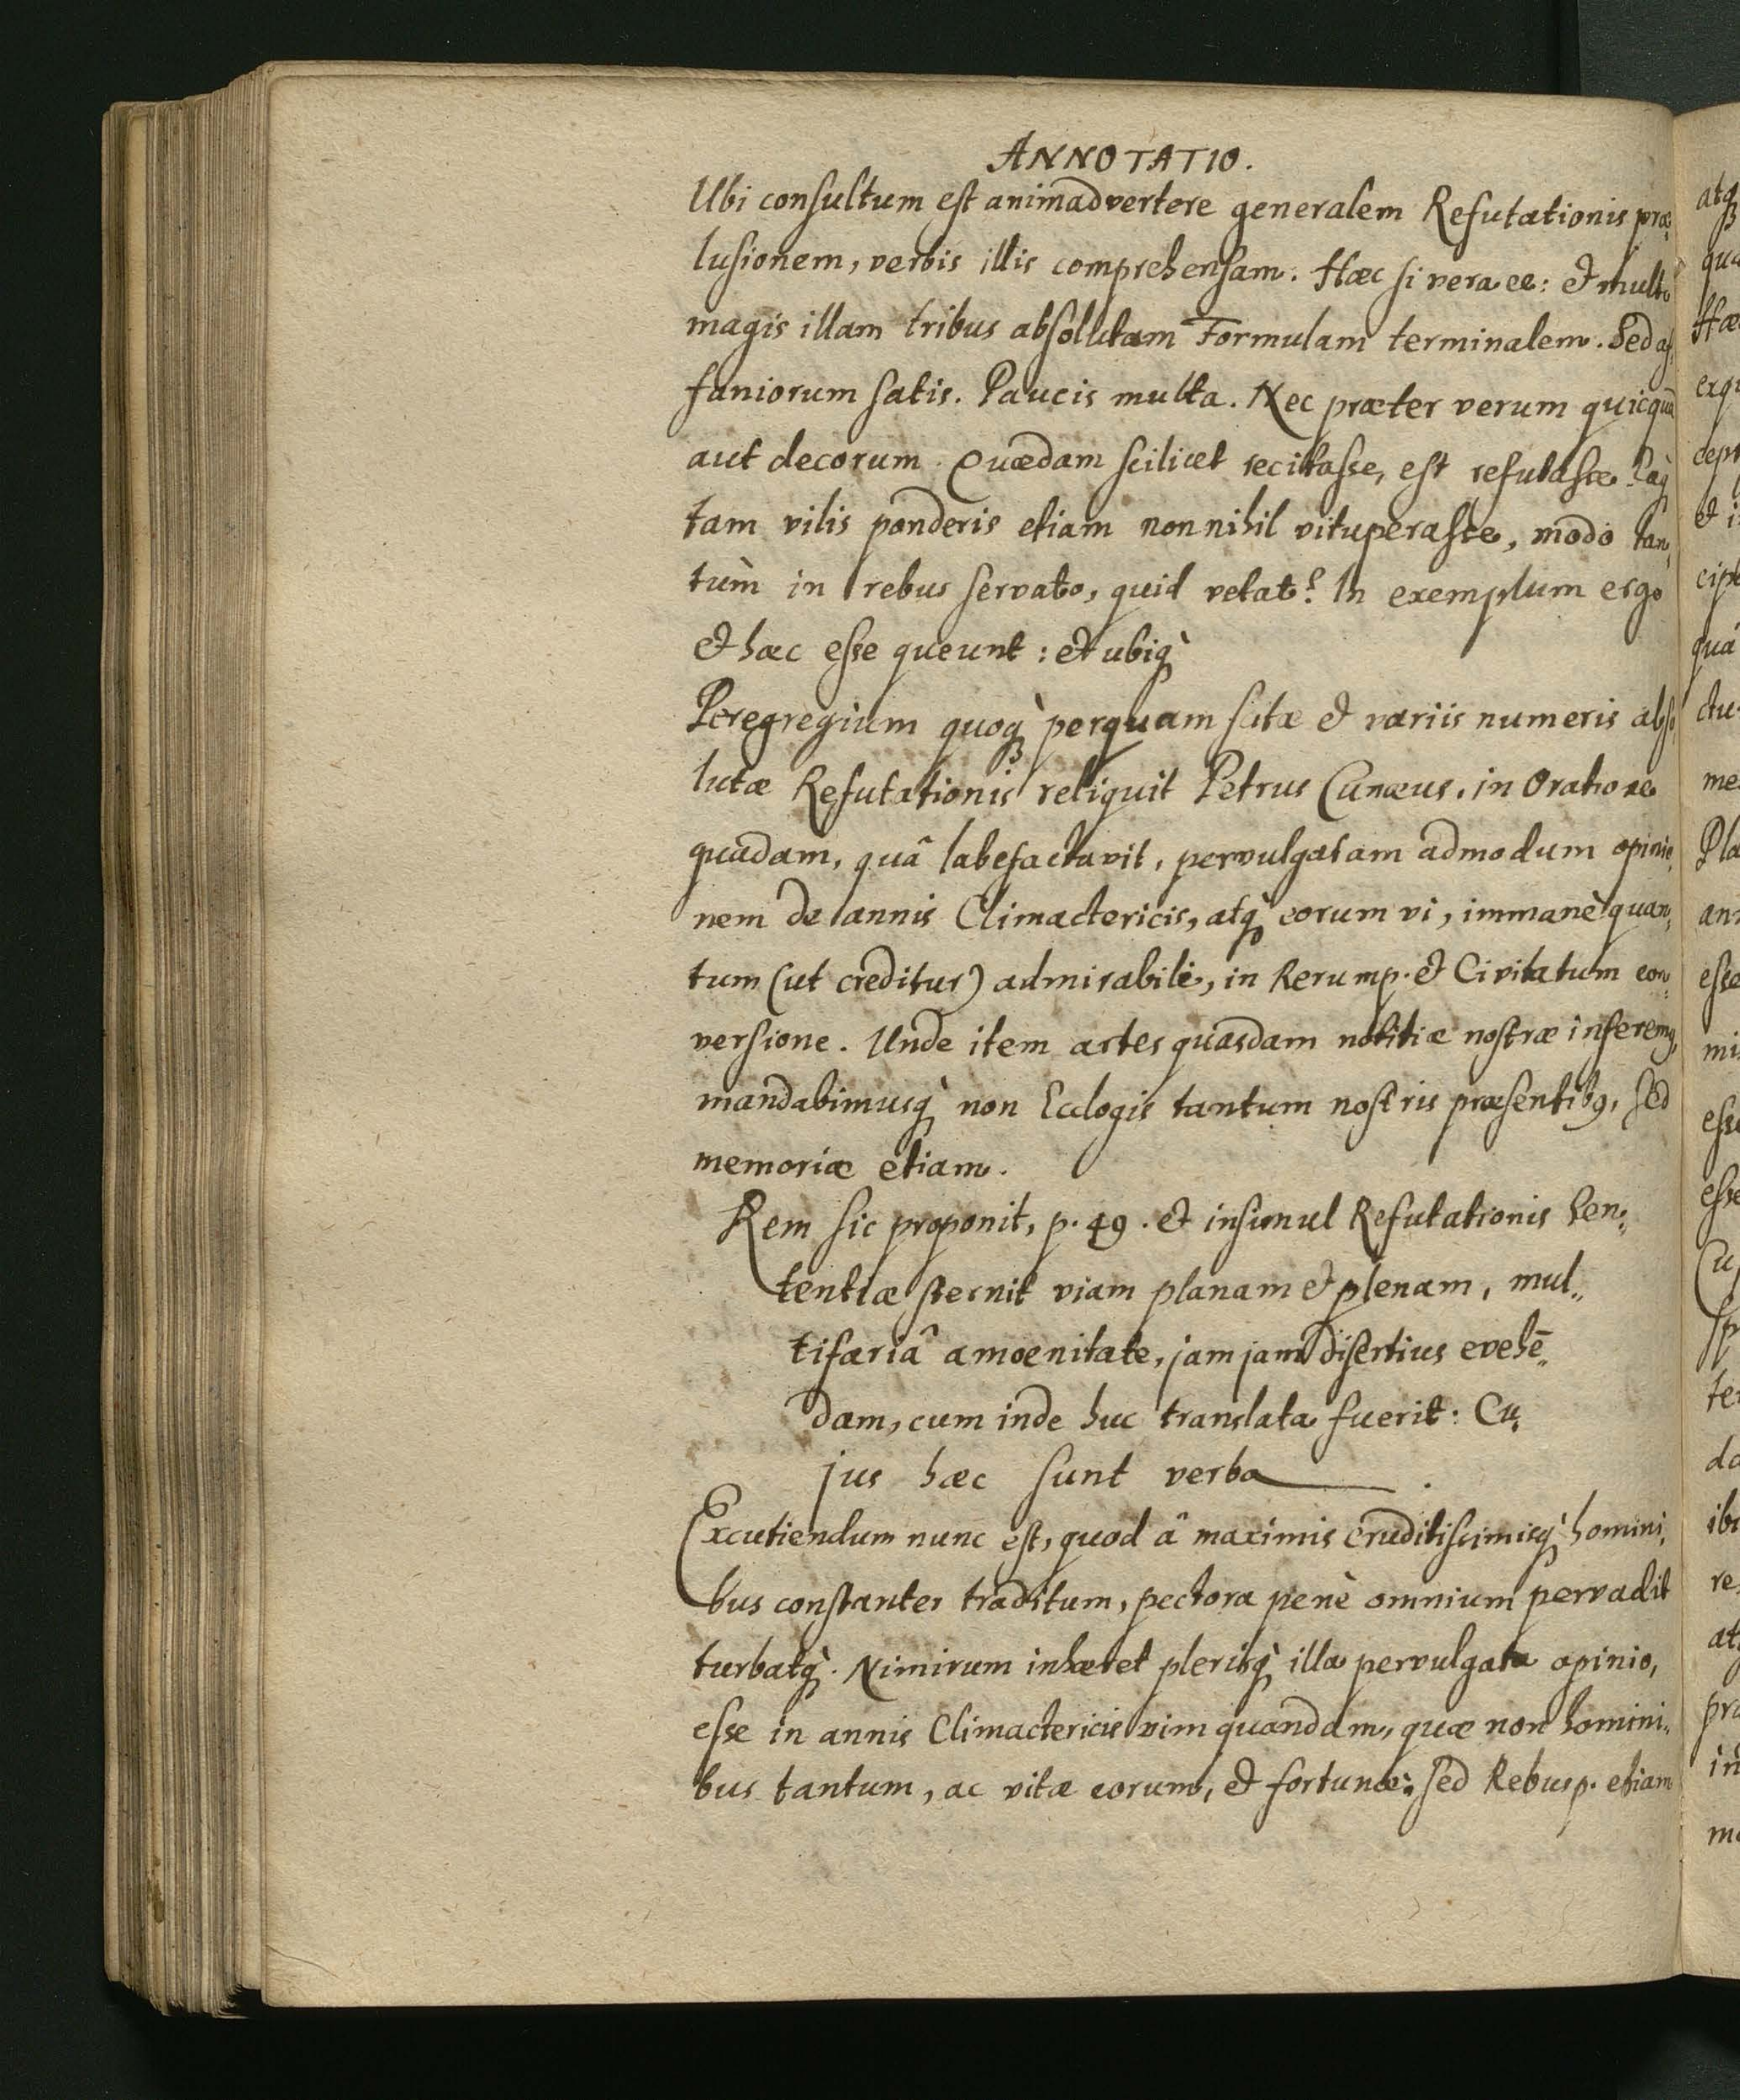 ANNOTATIO.
Ubi consultum est animadvertere generalem Refutationis præ,
lusionem, verbis illis comprehensam. Hæc si vera ee: & multo
magis illam tribus absolutam Formulam terminalem. Sed af,
faniorum satis. Paucis multa. Nec præter verum quicquā
aut decorum. Quædam scilicet recitasse, est refutasse. Eaq̀
tam vilis ponderis etiam nonnihil vituperasse, modò tan,
tùm in rebus servato, quid vetat? In exemplum ergo
& hæc esse queunt: et ubiq̀
Peregregium quoq̀ perquam scitæ & variis numeris abso,
lutæ Refutationis reliquit Petrus Cunæus. in Oratione
quâdam, quâ labefactavit, pervulgatam admodum opinio,
nem de annis Climactericis, atq̀ eorum vi, immanè quan,
tum (ut creditur) admirabili, in Rerump. & Civitatum con,
versione. Unde item artes quasdam notitiæ nostræ inferemq,
mandabimusq̀ non Eclogis tantum nostris præsentibq, sed
memoriæ etiam.
Rem sic proponit, p. 49. & insimul Refutationis sen,
tentiæ sternit viam planam & plenam, mul,,
tifariâ amoenitate, jam jam disertius evehē,,
dam, cum inde huc translata fuerit: Cu,
jus hæc sunt verba.
Excutiendum nunc est, quod â maximis eruditissimisq̀ homini,
bus constanter traditum, pectora penè omnium pervadit
turbatq̀. Nimirum inhæret plerisq̀ illa pervulgata opinio,
esse in annis Climactericis vim quandam, quæ non homini,,
bus tantum, ac vitæ eorum, & fortunæ: sed Rebusp. etiam